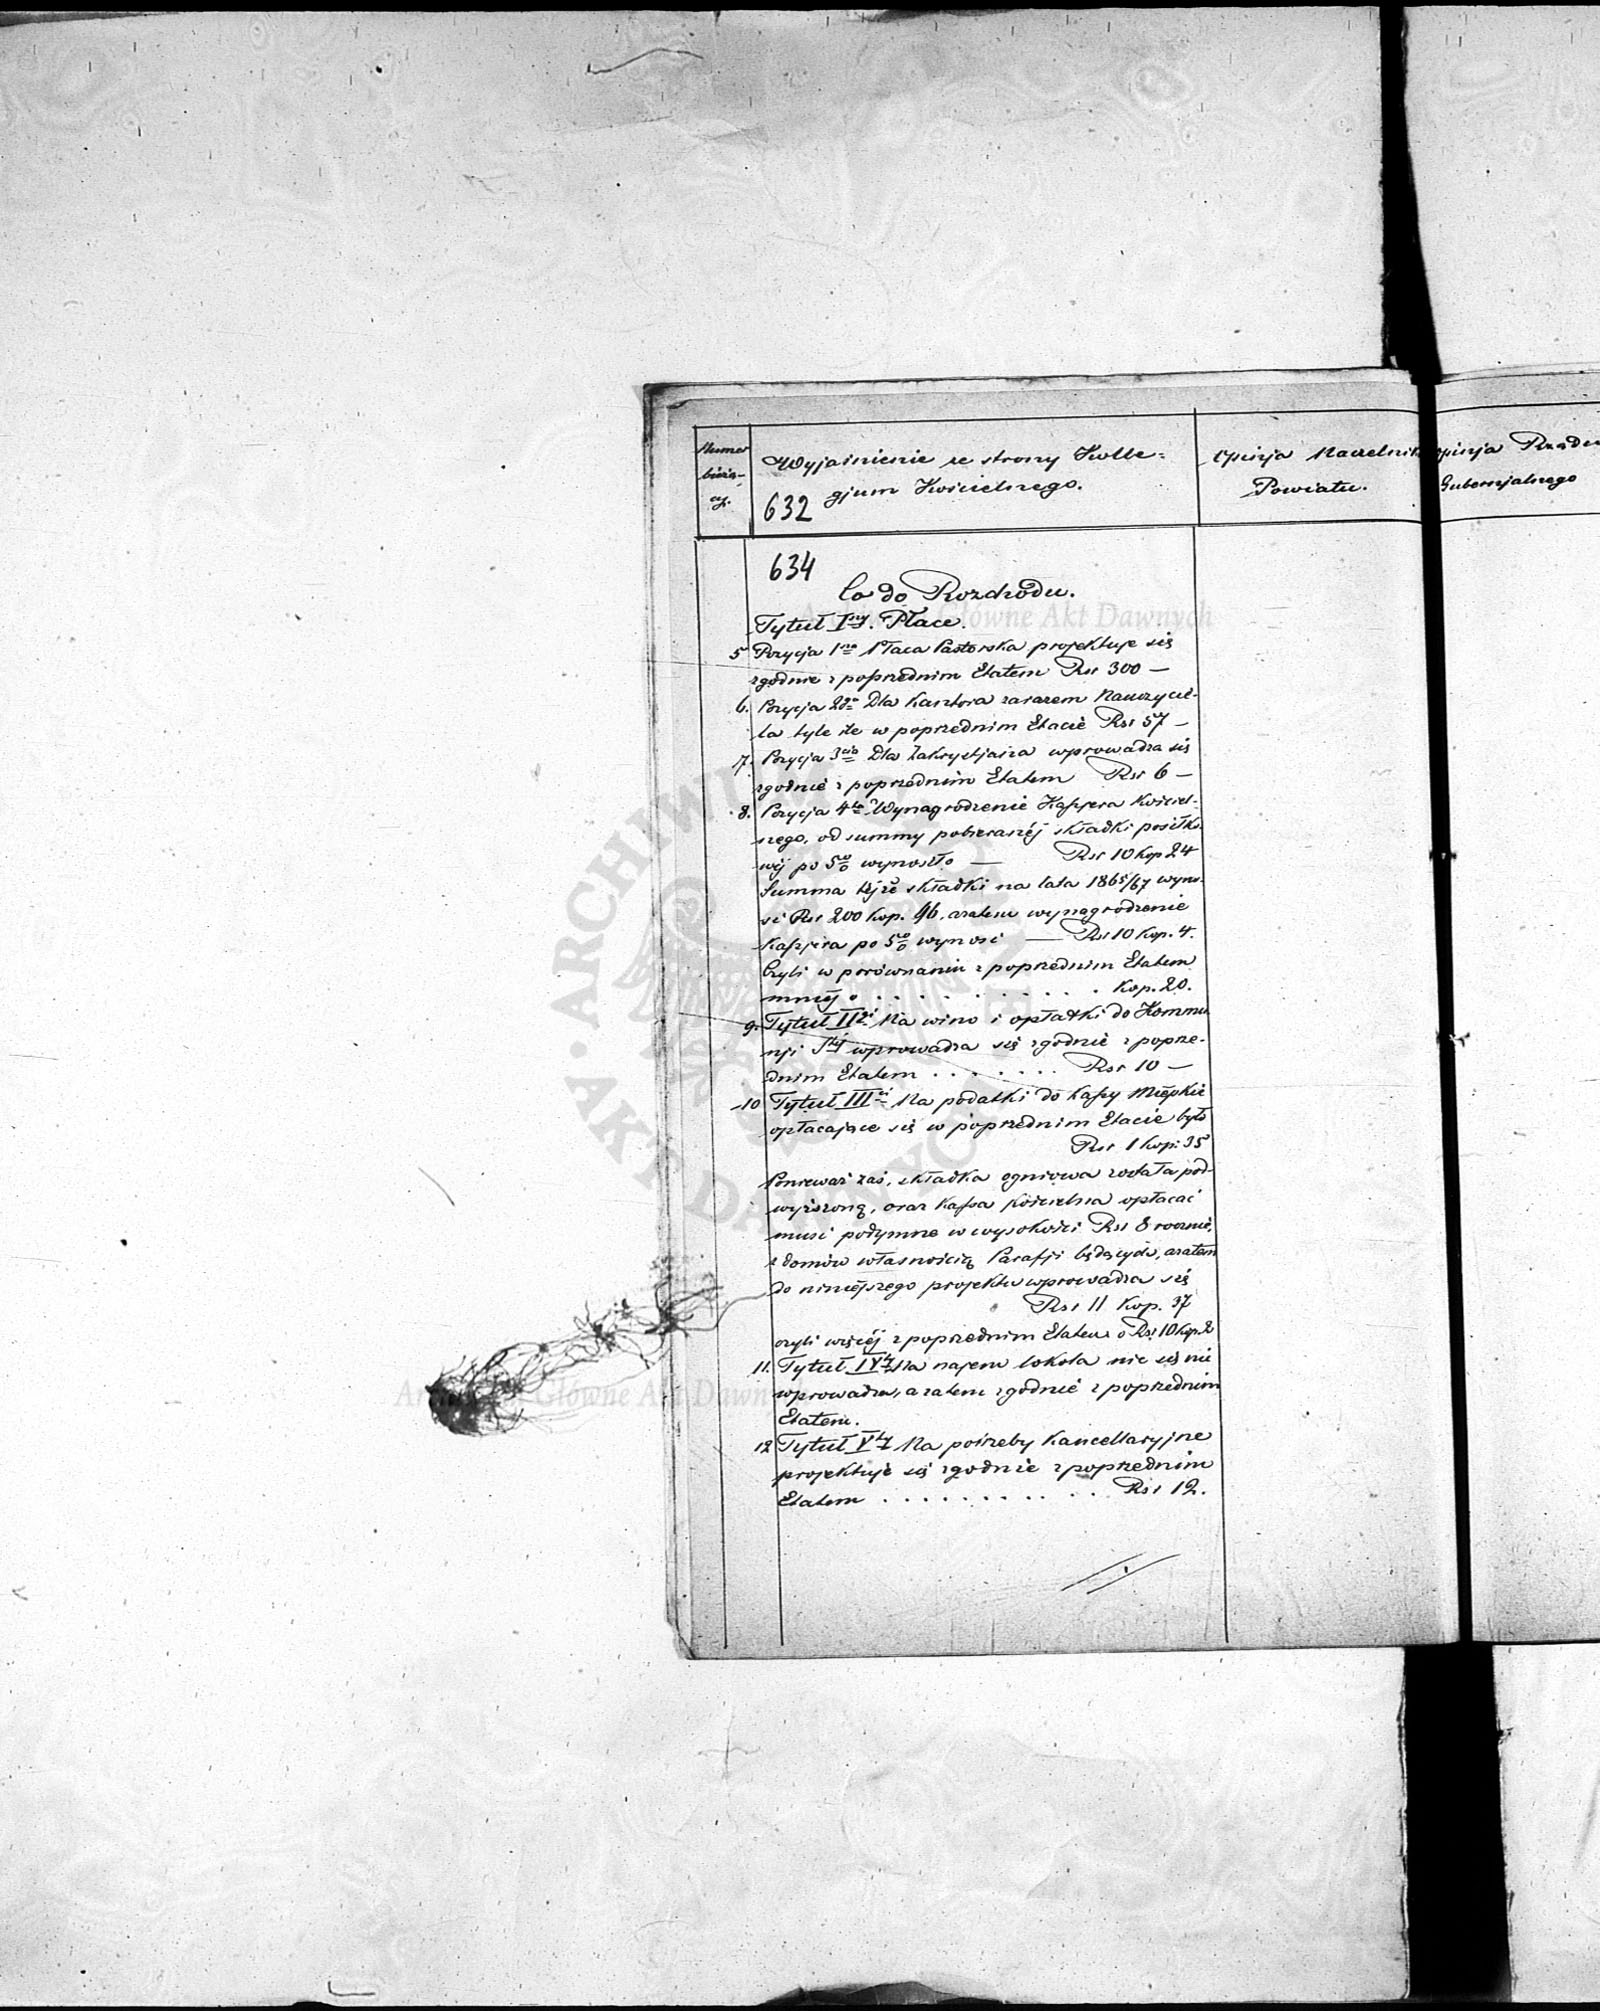 Numer
bieżą-
cy.
Wyjaśnienie ze strony Kolle=
gjum Kościelnego.
Opinja Naczelnik
Powiatu.
Opinja Rządu
Gubernjalnego
632
634
Co do Rozchodu.
Tytuł I^ny. Płace.
5 Pozycja 1^na Płaca Pastorska projektuje się
zgodnie z poprzednim Etatem Rsr 300 —
6. Pozycja 2^ga Dla Kantora zarazem Nauczycie-
la tyle ile w poprzednim Etacie Rsr 57 —
7. Pozycja 3^cia Dla Zakrystjana wprowadza się
zgodnie z poprzednim Etatem Rsr 6 —
8. Pozycja 4^ta Wynagrodzenie Kassjera Kościel-
nego, od summy pobieranéj składki posiłko
wéj po 5% wynosiło — Rsr 10 Kop 24
Summa téjże składki na lata 1865/67 wyno-
si Rsr 200 Kop. 96, a zatem wynagrodzenie
Kassjera po 5% wynosi — Rsr 10 Kop. 4.
Czyli w porównaniu z poprzednim Etatem
mniéj o . . . . . . . . . . Kop. 20.
9. Tytuł II^gi Na wino i opłatki do Kommu
nji S^tej wprowadza się zgodnie z poprze-
dnim Etatem . . . . . . . Rsr 10 —
10 Tytuł III^ci Na podatki do Kassy Miejskié
opłacające się w poprzednim Etacie było
Rsr 1 Kop: 35
Ponieważ zaś, składka ogniowa została pod-
wyższoną, oraz Kassa Kościelna opłacać
musi podymne w wysokości Rsr 8 rocznie,
z domów własnością Parafji będących, azatem
do niniejszego projektu wprowadza się
Rsr 11 Kop. 37
czyli więcéj z poprzednim Etatem o Rsr 10 Kop. 2
11. Tytuł IV^ty Na najem lokola nic się nie
wprowadza, a zatem zgodnie z poprzednim
Etatem.
12 Tytuł V^ty Na potrzeby Kancellaryjne
projektuje się zgodnie z poprzednim
Etatem . . . . . . . . . . Rsr 12.
Archiwum Główne Akt Dawnych
ARCHIWUM GŁÓWNE AKT DAWNYCH
Archiwum Główne Akt Dawnych